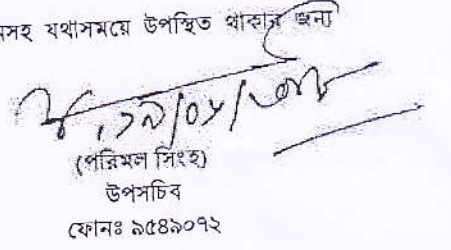 সহ যথাসময়ে উপস্থিত থাকার জন্য
(পরিমল সিংহ)
উপসচিব
ফোনঃ ৯৫৪৯০৭২